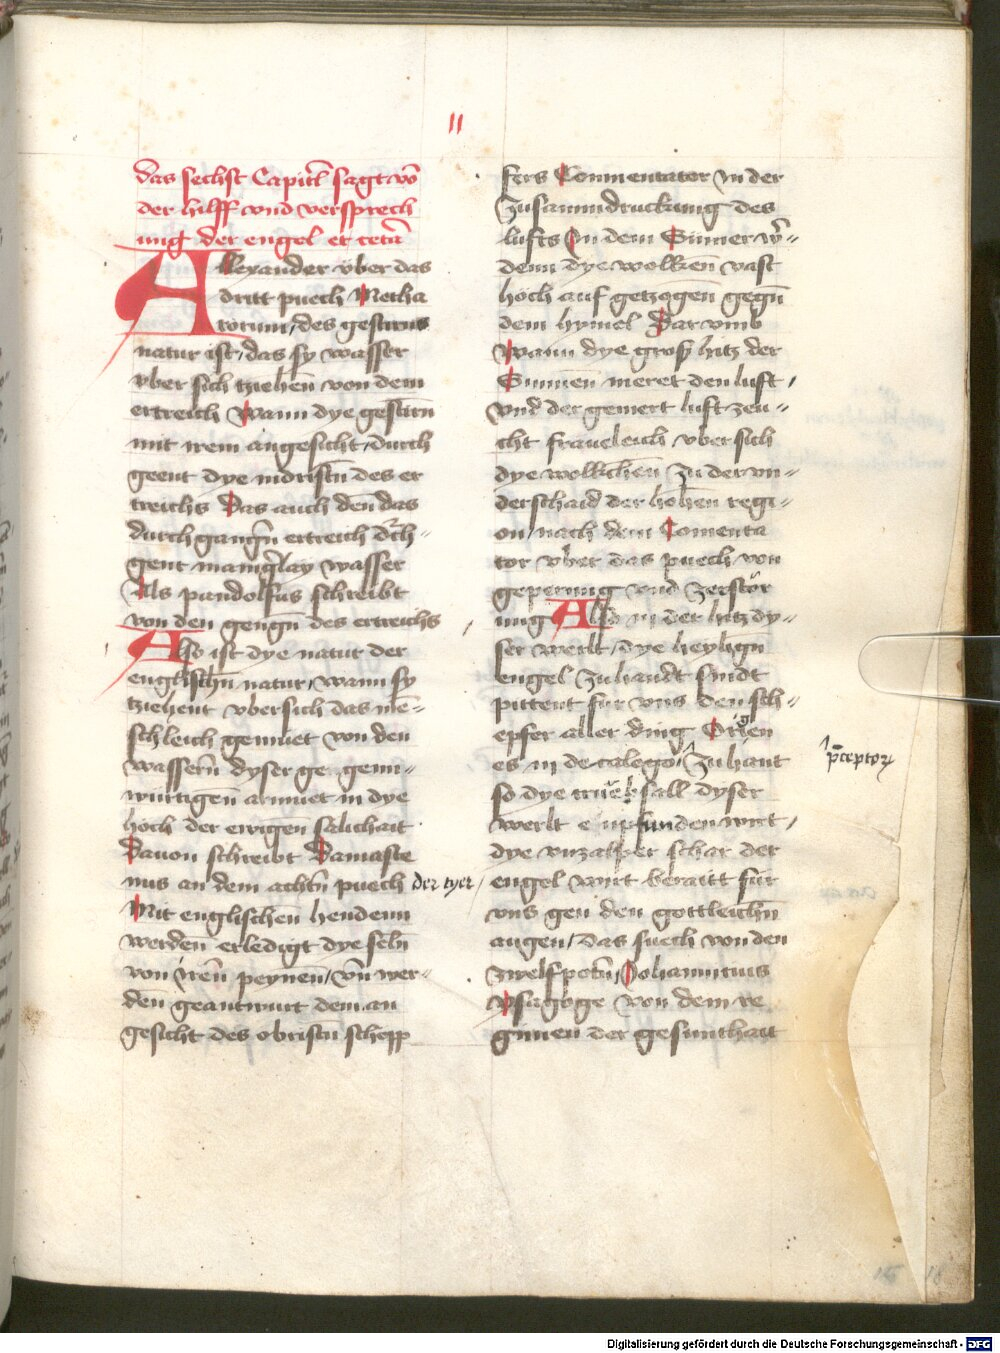 II
das sechst Capitl sagt võ
der hilff vnd versprech
ung der engel et cetã
Allexander vber das
dritt puech Metha
rorum / des gestirns
natur ist / das sy wasser
vber sich tziehen̄ von dem
ertreich Wann dye gestirn̄
mit irem angesicht / durch
geent dye indristn̄ des er
treichs Das auch den̄ das
durch gangn̄ ertreich dch̄-
gent manig̃lay wasser
Als pandolfus schreibt
von den gengn̄ des ertreichs
Also ist dye natur der
englischn̄ natur / wann sy
tziehent vbersich das mē-
schleich gemuet von den
wassern̄ dyser ge gem-
wurtigen̄ armuet in dye
höch der ewigen̄ salichait
Dauon schreibt Damaste
nus an dem achtn̄ puech der tyer /
Mit englischen̄ hendenn
werden̄ erledigt dye seln̄
von iren̄ peynen̄ / vn̄ wer-
den̄ geantwurt dem an
gesicht des obristn̄ schepp
fers Commentator in der
zusamndruckung des
lufts In dem Summer w̃-
denn dye wolken̄ vast
höch auf getzogen̄ gegn̄
dem hymel Dar vmb
Wann dye groß hitz der
Sunnen̄ meret den luft /
vnd der gemert luft zeu-
cht fraueleich vber sich
dye wollichen̄ zu der vn-
derschaid der hohen̄ regi-
on / nach dem Comenta
tor vber das puech von
geperung vnd zerstör
ung Also in der hitz dy-
ser werlt / dye heylign̄
engel zuhandt sindt
pittent für vns den sch-
epfer aller ding Origen
es in decalego / zu hant
p̄ceptorʒ
so dye trüebsall dyser
werlt e mpfunden wirt /
dye vnzalper schar der
engel wirt beraitt für
vns gen den gottleichn̄
augen / das suech von den
zwelfpotn̄ / Johannicius
ysagoge von dem re
gimen der gesunthait
16 18
Digitalisierung gefördert durch die Deutsche Forschungsgemeinschaft - DFG